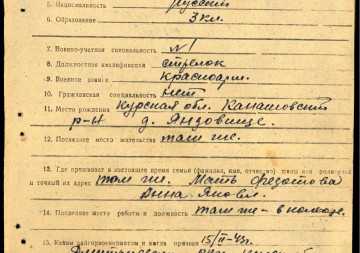 5. Национальность русский
6. Образование 3 кл.
7. Военно-учетная специальность №1
8. Должностная квалификация стрелок
9. Военное звание красноарм.
10. Гражданская специальность нет
11. Место рождения Курская обл. Канашовский
р-н д. Яндовище.
12. Последнее место жительства там же.
13. Где проживает в настоящее время семья (фамилия, имя, отчество)
и точный их адрес там же. Мать Федотова
Анна Яковл.
14. Последнее место работы и должность там же - в колхозе.
15. Каким райгорвоенкоматом и когда призван 15/II-43г.